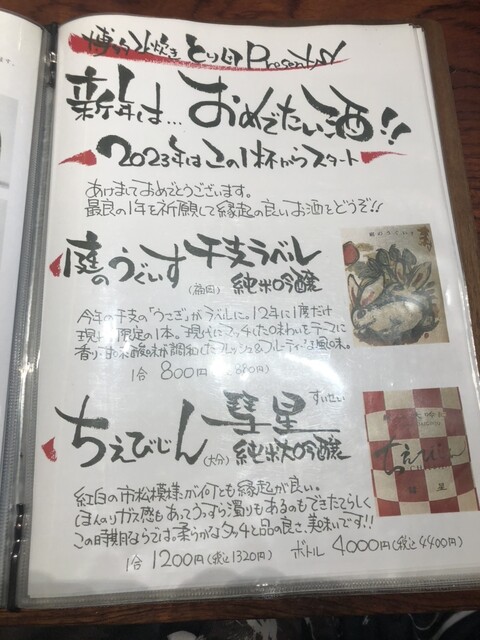 博多水炊き とり田 Presents
新年は… おめでたい酒!!
2023年はこの1杯からスタート
あけましておめでとうございます。
最良の1年を祈願して縁起の良いお酒をどうぞ!!
庭のうぐいす 干支ラベル
(福岡) 純米吟醸
今年の干支の「うさぎ」がラベルに。12年に1度だけ
現 限定の1本。現代にマッチした味わいをテーマに
香り・甘味・酸味が調和したフレッシュ&フルーティーな風味。
1合 800円( 880円)
ちえびじん 彗星 すいせい
(大分) 純米大吟醸
紅白の市松模様が何とも縁起が良い。
ほんのりガス感もあってうすら濁りもあるのもできたてらしく
この時期ならでは。柔らかなタッチと品の良さ、美味いです!!
1合 1200円(税込1320円) ボトル 4000円(税込4400円)
ちえびじん
彗星